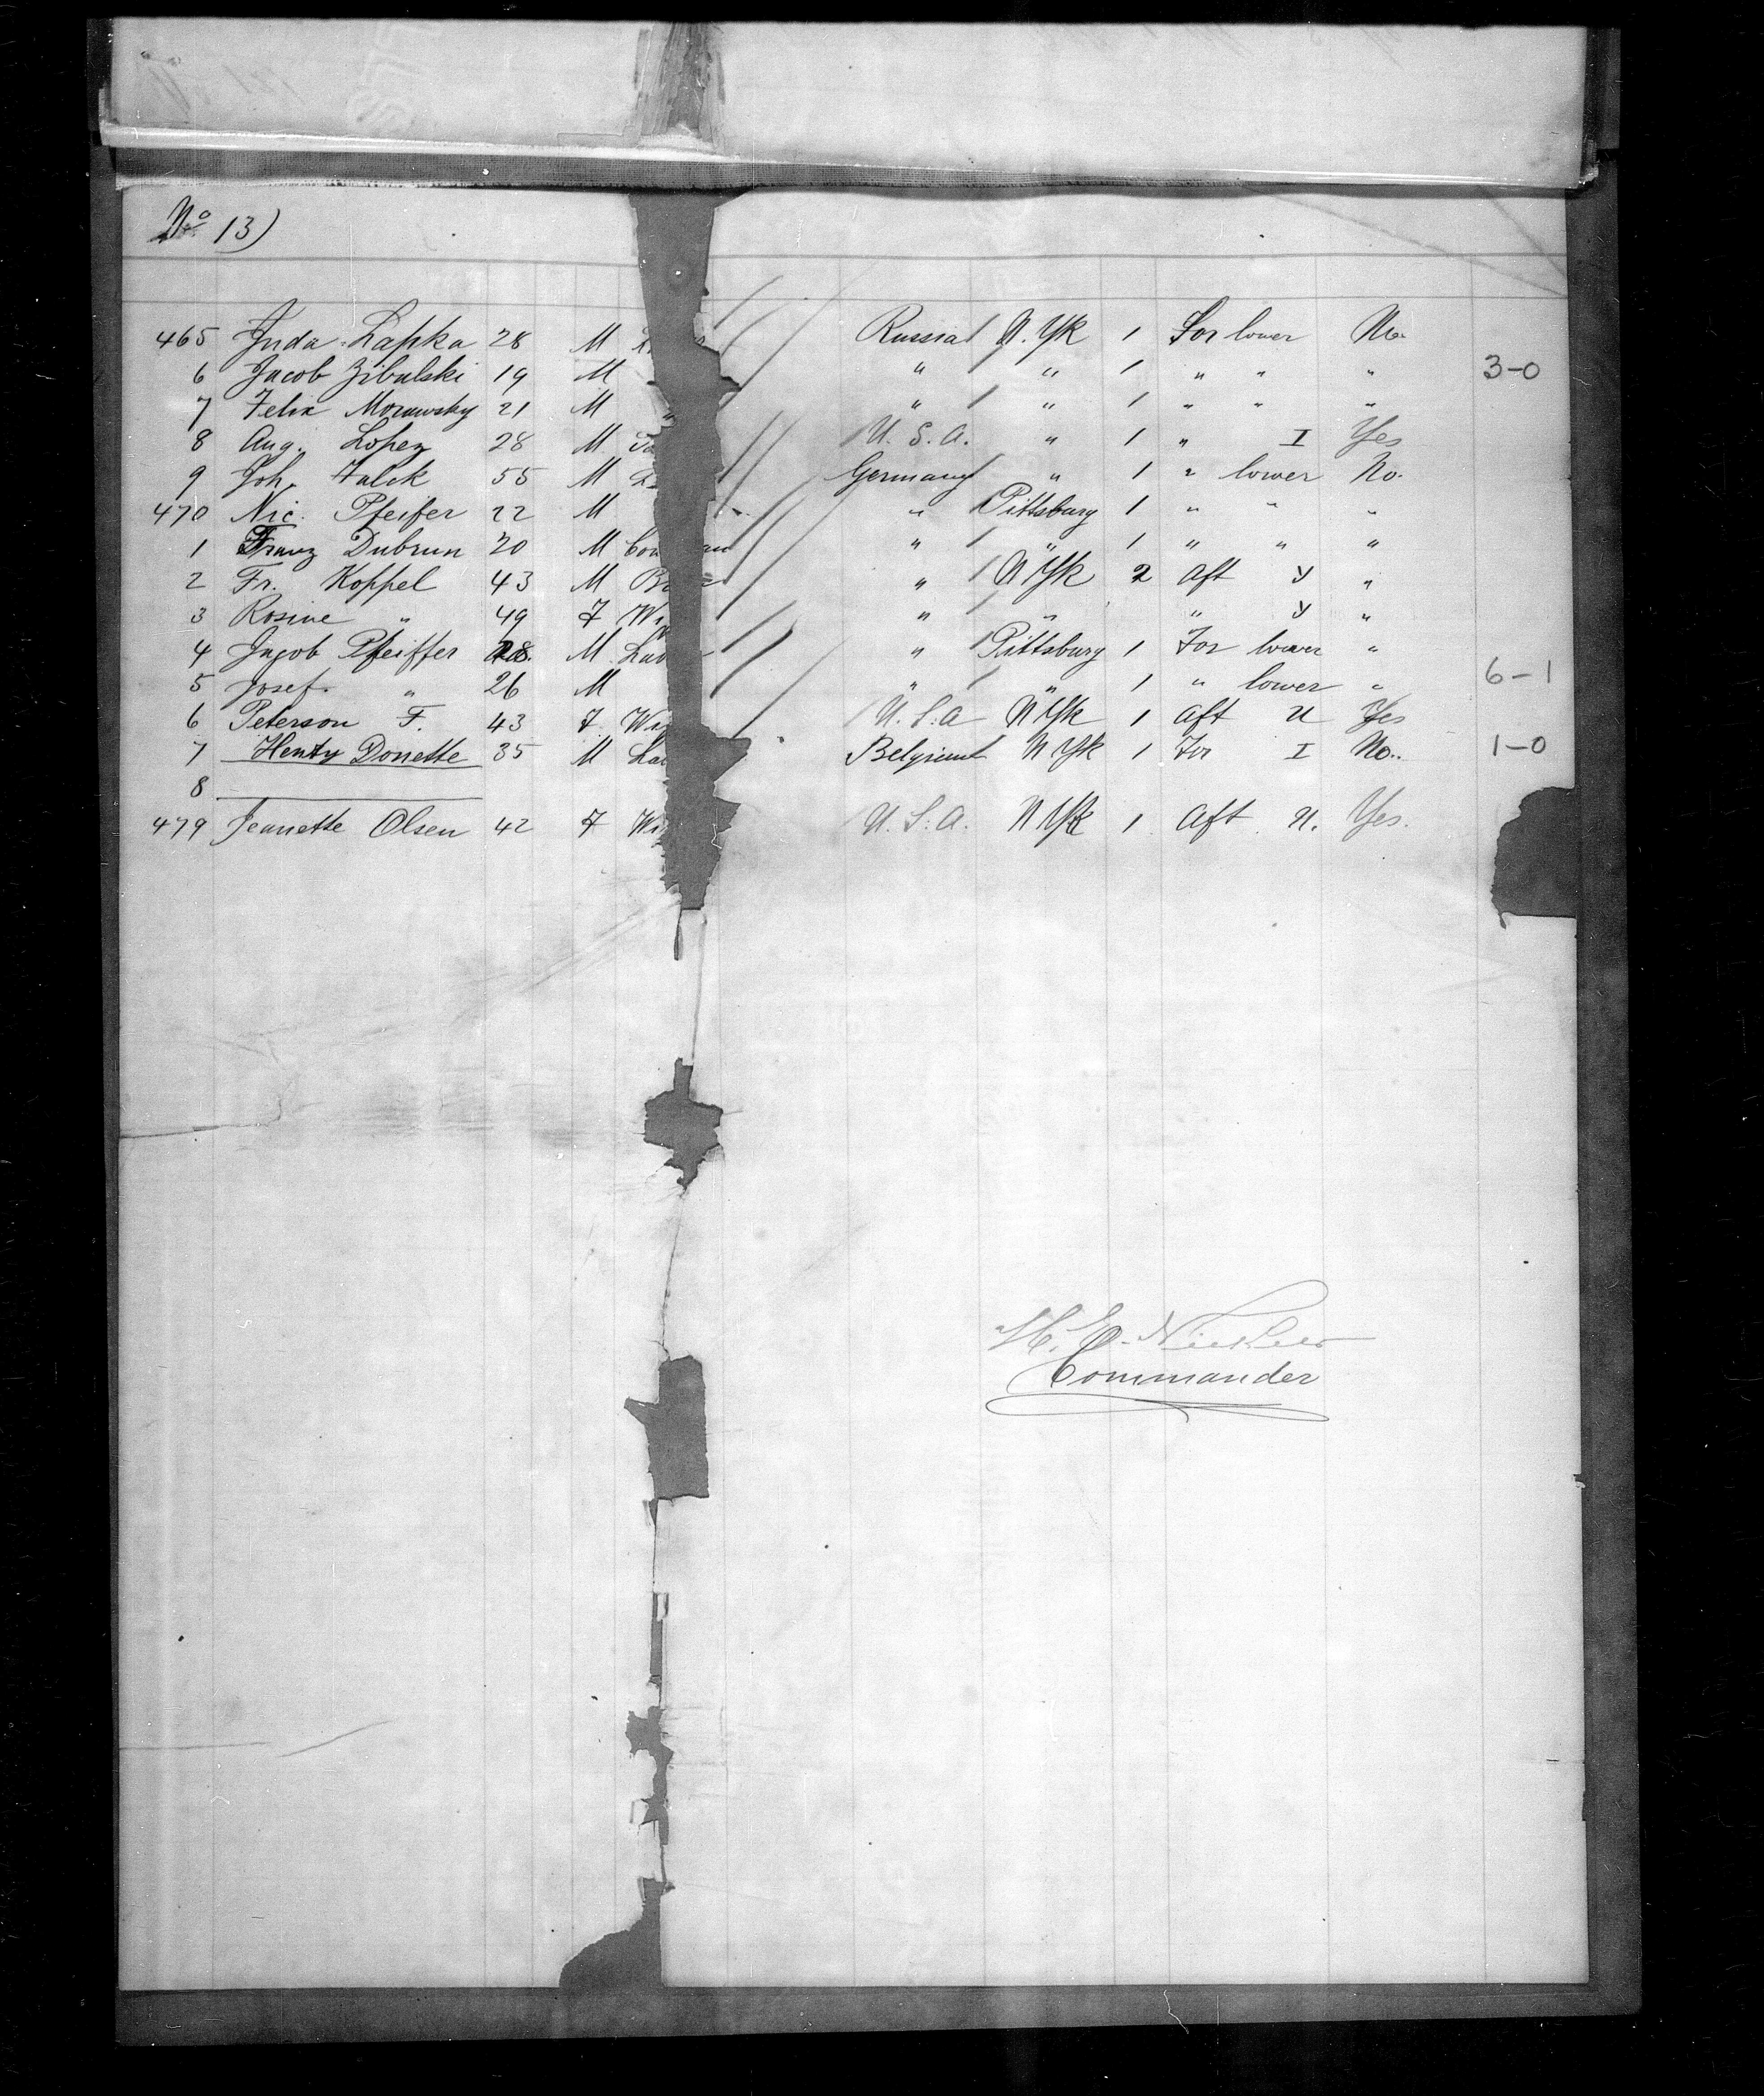 No 13)
465 Juda Lapka 28 M Russia N.Yk 1 For lower No
6 Jacob Zibulski 19 M " " 1 " " " 3-0
7 Felix Morawsky 21 M " " " 1 " " "
8 Aug. Lopez 28 M U.S.A. " 1 " I Yes
9 Joh. Falck 55 M Germany " 1 " lower No.
470 Nic. Pfeifer 22 M " Pittsburg 1 " " "
1 Franz Dubrun 20 M " " 1 " " "
2 Fr. Koppel 43 M " N Yk 2 Aft y "
3 Rosine " 49 F " " " y "
4 Jacob Pfeiffer 28. M " Pittsburg 1 For lower "
5 Josef. " 26 M " " 1 " lower " 6-1
6 Peterson F. 43 F U.S.A N Yk 1 Aft U Yes
7 Henty Donette 35 M Belgium N Yk 1 For I No.. 1-0
8
479 Jeanette Olsen 42 F U.S.A. N Yk 1 Aft U. Yes.
Commander